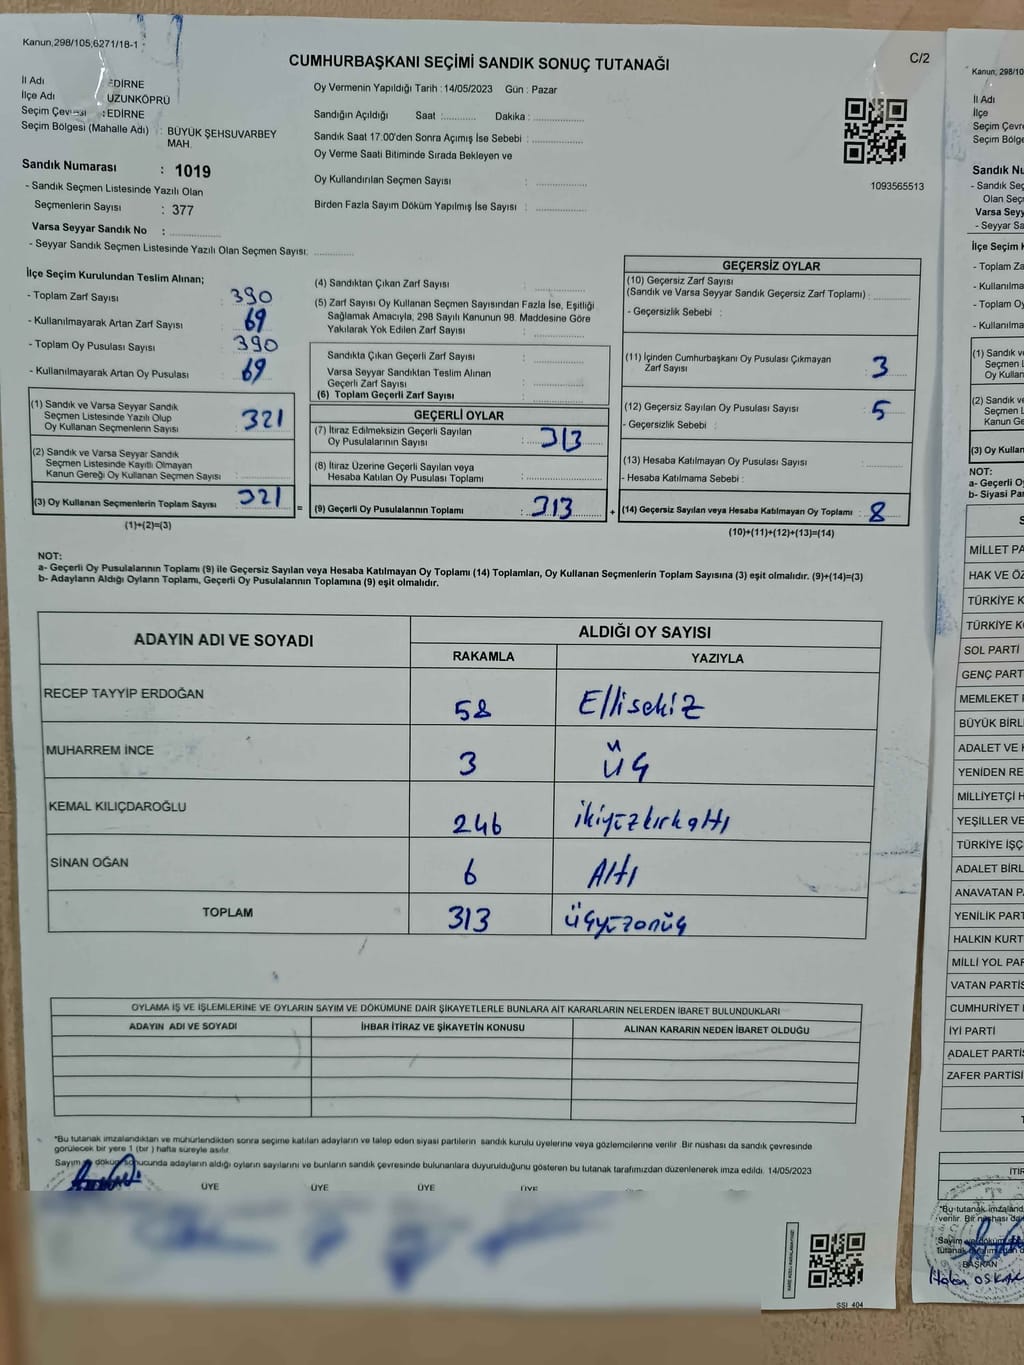 Kanun,298/105,6271/18-1
C/2
CUMHURBAŞKANI SEÇİMİ SANDIK SONUÇ TUTANAĞI
İl Adı EDİRNE
İlçe Adı UZUNKÖPRÜ
Seçim Çevresi : EDİRNE
Seçim Bölgesi (Mahalle Adı) : BÜYÜK ŞEHSUVARBEY
MAH.
Sandık Numarası : 1019
- Sandık Seçmen Listesinde Yazılı Olan
Seçmenlerin Sayısı : 377
Varsa Seyyar Sandık No :
- Seyyar Sandık Seçmen Listesinde Yazılı Olan Seçmen Sayısı:
Oy Vermenin Yapıldığı Tarih : 14/05/2023 Gün : Pazar
Sandığın Açıldığı Saat : Dakika :
Sandık Saat 17.00'den Sonra Açımış İse Sebebi :
Oy Verme Saati Bitiminde Sırada Bekleyen ve
Oy Kullandırılan Seçmen Sayısı :
Birden Fazla Sayım Döküm Yapılmış İse Sayısı :
1093565513
İlçe Seçim Kurulundan Teslim Alınan;
- Toplam Zarf Sayısı : 390
- Kullanılmayarak Artan Zarf Sayısı : 69
- Toplam Oy Pusulası Sayısı : 390
- Kullanılmayarak Artan Oy Pusulası : 69
(1) Sandık ve Varsa Seyyar Sandık
Seçmen Listesinde Yazılı Olup
Oy Kullanan Seçmenlerin Sayısı : 321
(2) Sandık ve Varsa Seyyar Sandık
Seçmen Listesinde Kayıtlı Olmayan
Kanun Gereği Oy Kullanan Seçmen Sayısı :
(3) Oy Kullanan Seçmenlerin Toplam Sayısı : 321
(1)+(2)=(3)
(4) Sandıktan Çıkan Zarf Sayısı :
(5) Zarf Sayısı Oy Kullanan Seçmen Sayısından Fazla İse, Eşitliği
Sağlamak Amacıyla, 298 Sayılı Kanunun 98. Maddesine Göre
Yakılarak Yok Edilen Zarf Sayısı :
Sandıkta Çıkan Geçerli Zarf Sayısı :
Varsa Seyyar Sandıktan Teslim Alınan
Geçerli Zarf Sayısı :
(6) Toplam Geçerli Zarf Sayısı :
GEÇERLİ OYLAR
(7) İtiraz Edilmeksizin Geçerli Sayılan
Oy Pusulalarının Sayısı : 313
(8) İtiraz Üzerine Geçerli Sayılan veya
Hesaba Katılan Oy Pusulası Toplamı :
= (9) Geçerli Oy Pusulalarının Toplamı : 313
GEÇERSİZ OYLAR
(10) Geçersiz Zarf Sayısı
(Sandık ve Varsa Seyyar Sandık Geçersiz Zarf Toplamı) :
- Geçersizlik Sebebi :
(11) İçinden Cumhurbaşkanı Oy Pusulası Çıkmayan
Zarf Sayısı : 3
(12) Geçersiz Sayılan Oy Pusulası Sayısı : 5
- Geçersizlik Sebebi :
(13) Hesaba Katılmayan Oy Pusulası Sayısı :
- Hesaba Katılmama Sebebi :
+ (14) Geçersiz Sayılan veya Hesaba Katılmayan Oy Toplamı : 8
(10)+(11)+(12)+(13)=(14)
NOT:
a- Geçerli Oy Pusulalarının Toplamı (9) ile Geçersiz Sayılan veya Hesaba Katılmayan Oy Toplamı (14) Toplamları, Oy Kullanan Seçmenlerin Toplam Sayısına (3) eşit olmalıdır. (9)+(14)=(3)
b- Adayların Aldığı Oyların Toplamı, Geçerli Oy Pusulalarının Toplamına (9) eşit olmalıdır.
ADAYIN ADI VE SOYADI ALDIĞI OY SAYISI
RAKAMLA YAZIYLA
RECEP TAYYİP ERDOĞAN 58 Ellisekiz
MUHARREM İNCE 3 üç
KEMAL KILIÇDAROĞLU 246 ikiyüzkırkaltı
SİNAN OĞAN 6 Altı
TOPLAM 313 üçyüzonüç
OYLAMA İŞ VE İŞLEMLERİNE VE OYLARIN SAYIM VE DÖKÜMÜNE DAİR ŞİKAYETLERLE BUNLARA AİT KARARLARIN NELERDEN İBARET BULUNDUKLARI
ADAYIN ADI VE SOYADI İHBAR İTİRAZ VE ŞİKAYETİN KONUSU ALINAN KARARIN NEDEN İBARET OLDUĞU
*Bu tutanak imzalandıktan ve mühürlendikten sonra seçime katılan adayların ve talep eden siyasi partilerin sandık kurulu üyelerine veya gözlemcilerine verilir. Bir nüshası da sandık çevresinde
görülecek bir yere 1 (bir) hafta süreyle asılır.
Sayım ve döküm sonucunda adayların aldığı oyların sayılarını ve bunların sandık çevresinde bulunanlara duyurulduğunu gösteren bu tutanak tarafımızdan düzenlenerek imza edildi. 14/05/2023
ÜYE ÜYE ÜYE ÜYE
SSI_404
Kanun, 298/10
İl Adı
İlçe
Seçim Çevre
Seçim Bölge
Sandık Nu
- Sandık Seç
Olan Seç
Varsa Seyy
- Seyyar Sa
İlçe Seçim K
- Toplam Za
- Kullanılma
- Toplam Oy
- Kullanılma
(1) Sandık v
Seçmen L
Oy Kullan
(2) Sandık ve
Seçmen L
Kanun Ge
(3) Oy Kullan
NOT:
a- Geçerli Oy
b- Siyasi Par
S
MİLLET PA
HAK VE ÖZ
TÜRKİYE K
TÜRKİYE KO
SOL PARTİ
GENÇ PART
MEMLEKET P
BÜYÜK BİRL
ADALET VE K
YENİDEN RE
MİLLİYETÇİ H
YEŞİLLER VE
TÜRKİYE İŞÇ
ADALET BİRL
ANAVATAN PA
YENİLİK PART
HALKIN KURT
MİLLİ YOL PAR
VATAN PARTİS
CUMHURİYET
İYİ PARTİ
ADALET PARTİS
ZAFER PARTİSİ
T
İTİR
*Bu tutanak imzaland
verilir. Bir nüshası da
Sayım
tutanak
BAŞKAN